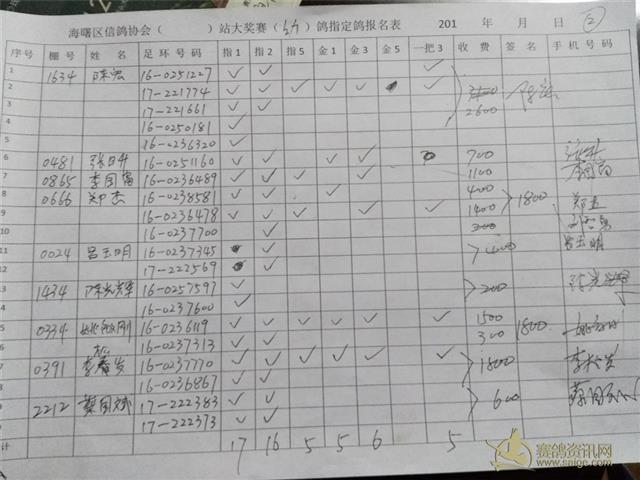 海曙区信鸽协会（ ）站大奖赛（ ）鸽指定鸽报名表 201 年 月 日 ②
序号 棚号 姓名 足环号码 指1 指2 指5 金1 金3 金5 一把3 收费 签名 手机号码
1 1634 陈宏 16-0251227 ✓ ✓ ✓
2 17-221774 ✓ ✓ ✓ ✓ ✓ ✓
3 17-221661 ✓ ✓ 2600
4 16-0250181 ✓
5 16-0236320 ✓
6 0481 16-0251160 ✓ ✓ ✓ ✓ 700
7 0865 李国富 16-0236489 ✓ ✓ ✓ ✓ 1100
8 0666 郑杰 16-0238581 ✓ ✓ ✓ 400 1800 郑杰
9 16-0236478 ✓ ✓ ✓ ✓ ✓ 1400
16-0237700 ✓
11 0024 吕玉明 16-0237345 ✓ 400 吕玉明
12 17-222569 ✓
13 1434 陈光辉 16-0257597 ✓ 200
14 16-0237600 ✓
15 0334 16-0236119 ✓ ✓ ✓ ✓ ✓ ✓ 1500 1800
16-0237313 ✓ ✓ 300
0391 16-0237770 ✓ ✓ ✓ ✓ ✓ ✓ 1800
16-0236867 ✓ ✓
2212 蔡国斌 17-222383 ✓ ✓ 600
17-222373 ✓ ✓
计 17 16 5 5 6 5
赛鸽资讯网
www.saige.com